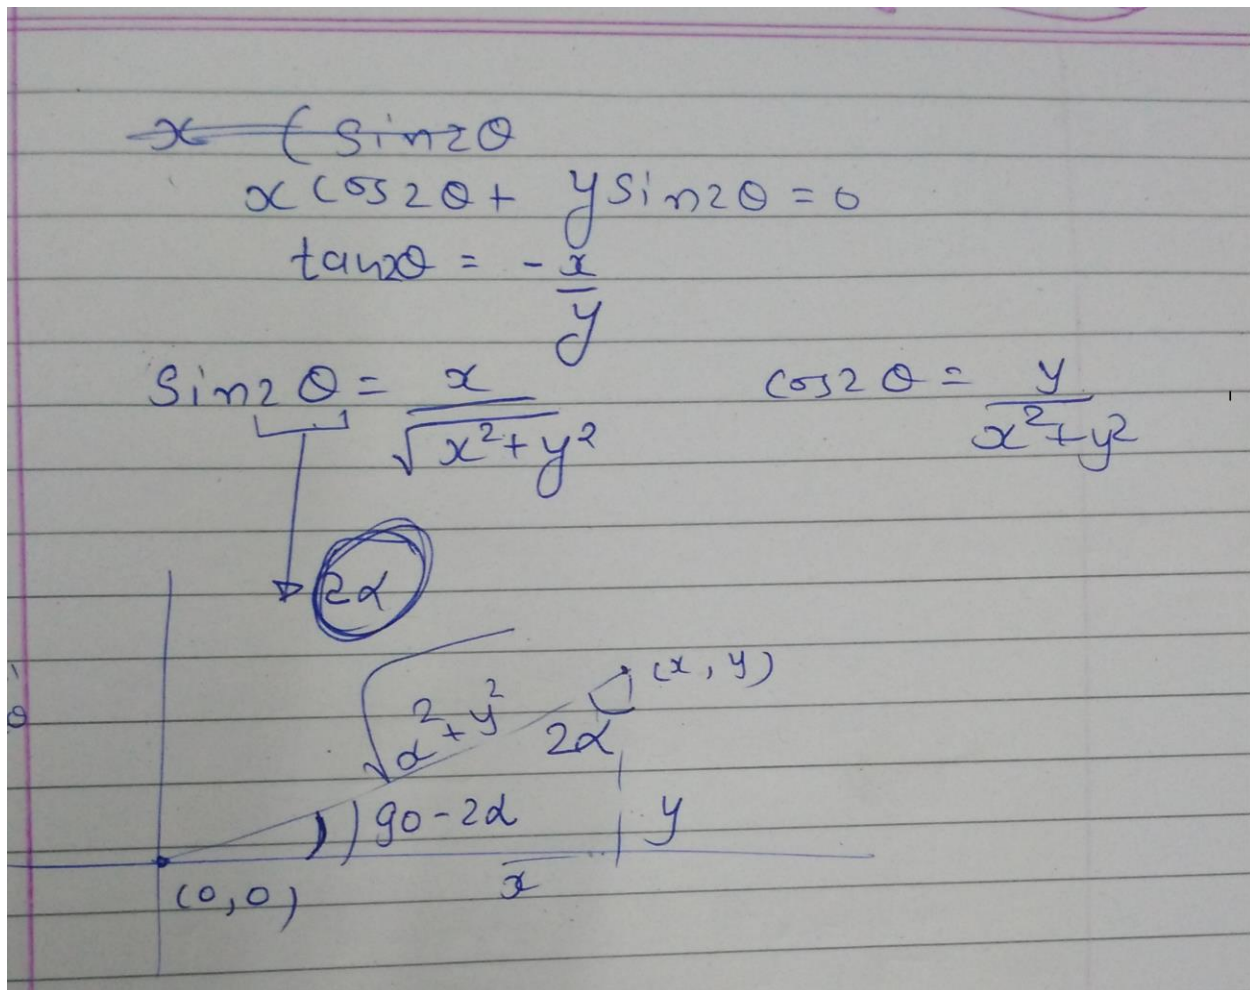 x ( sin2θ
x cos2θ + y sin2θ = 0
tan2θ = - x/y
Sin2θ = x/√x²+y² cos2θ = y/x²+y²
2α
(x, y)
√x²+y²
2α
90-2α y
x
(0,0)
θ